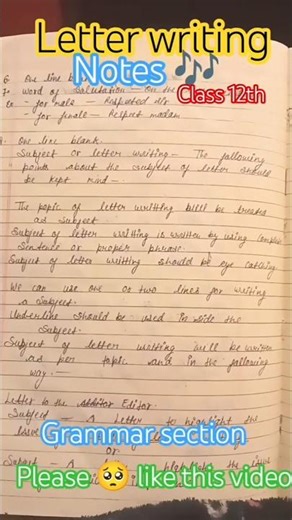 Letter writing
Notes 🎶
Class 12th
6. One line b
7. word of salutation — On the
Ex - for male - Respected sir
- for female - Respect madam
8. One line blank.
Subject or letter writing - The following
points about the subject of letter should
be kept mind -
The topic of letter writting will be treate
as subject.
Subject of letter writting is written by using
Sentence or proper phrase.
Subject of letter writting should be eye catching
We can use one or two lines for writing
a subject.
Underline should be used in side the
Subject.
Subject of letter writting will be written
as per topic and in the following
way.
Letter to the Editor.
Subject - A Letter to highlight the
Grammar section
or
Subject - A
Please 🥺 like this video